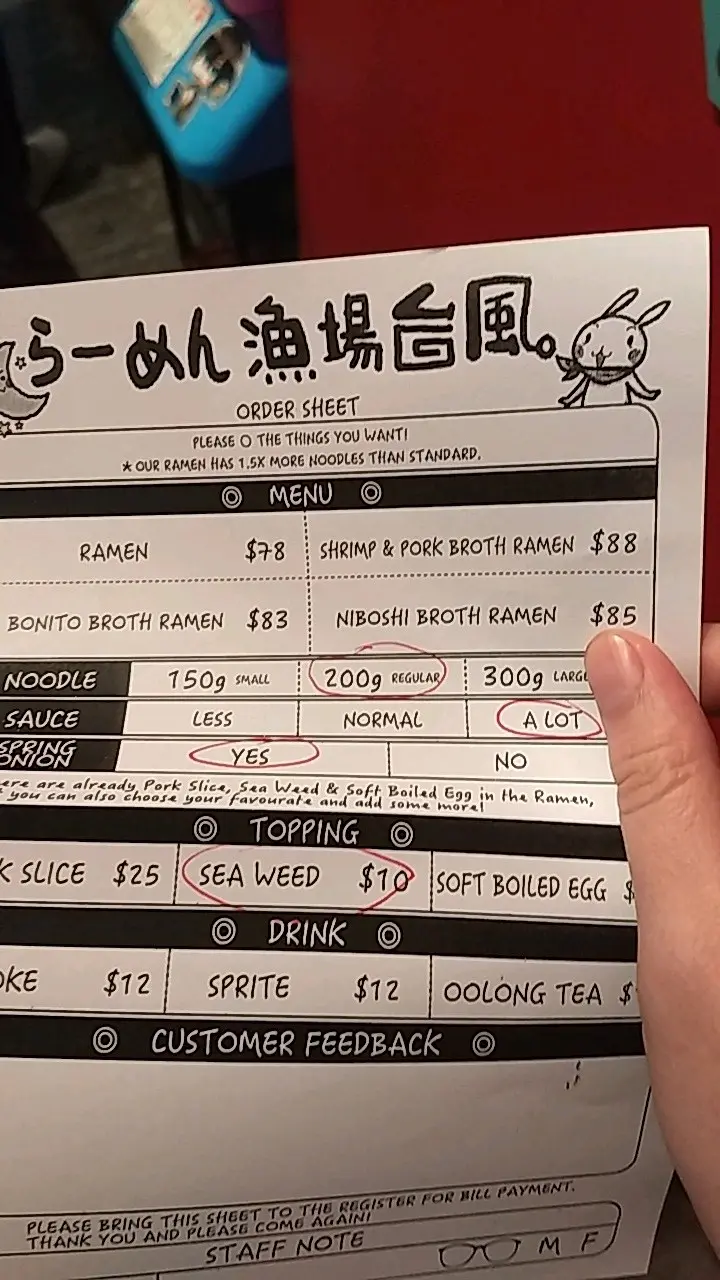 らーめん 漁場台風。
ORDER SHEET
PLEASE O THE THINGS YOU WANT!
★ OUR RAMEN HAS 1.5X MORE NOODLES THAN STANDARD.
◎ MENU ◎
RAMEN $78 SHRIMP & PORK BROTH RAMEN $88
BONITO BROTH RAMEN $83 NIBOSHI BROTH RAMEN $85
NOODLE 150g SMALL 200g REGULAR 300g LARG
SAUCE LESS NORMAL A LOT
SPRING
ONION YES NO
ere are already Pork Slice, Sea Weed & Soft Boiled Egg in the Ramen,
you can also choose your favourate and add some more!
◎ TOPPING ◎
K SLICE $25 SEA WEED $10 SOFT BOILED EGG $
◎ DRINK ◎
OKE $12 SPRITE $12 OOLONG TEA $
◎ CUSTOMER FEEDBACK ◎
PLEASE BRING THIS SHEET TO THE REGISTER FOR BILL PAYMENT.
THANK YOU AND PLEASE COME AGAIN!
STAFF NOTE
M F